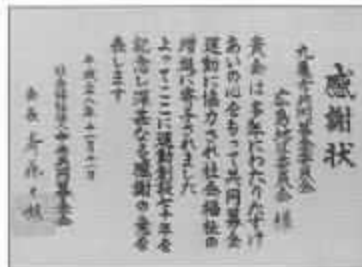 感謝状
共同募金委員会
広島
委員会 様
貴会は多年にわたりたすけ
あいの心をもって共同募金
運動に協力され社会福祉の
増進に寄与されました
よってここに運動創設七十年を
記念し深甚なる感謝の意を
表します
平成二八年十一月
社会福祉法人中央共同募金会
会長